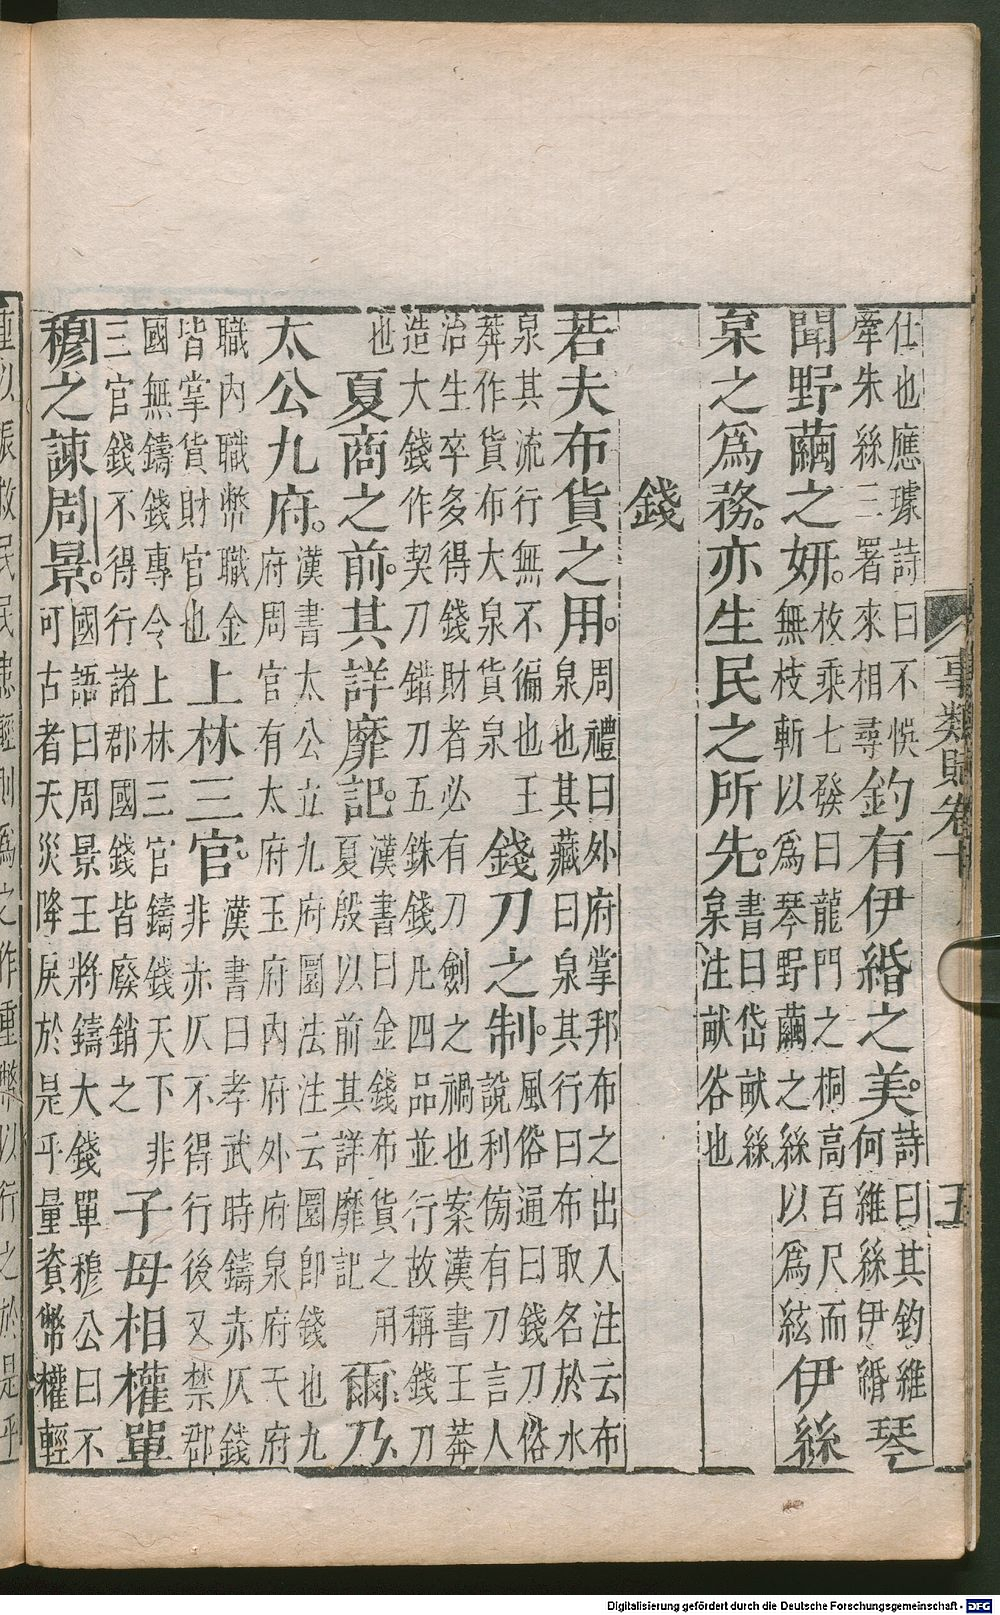 事類賦卷十 五
仕也應璩詩曰不悞牽朱絲三署來相尋釣有伊緡之美。詩曰其釣維何維絲伊緡琴
聞野繭之妍。枚乘七發曰龍門之桐高百尺而無枝斬以爲琴野繭之絲以爲絃伊絲
枲之爲務。亦生民之所先。書曰岱献絲枲注献谷也
錢
若夫布貨之用。周禮曰外府掌邦布之出入注云布泉也其藏曰泉其行曰布取名於水
泉其流行無不徧也王莽作貨布大泉貨泉錢刀之制。風俗通曰錢刀俗說利傍有刀言人
治生卒多得錢財者必有刀劍之禍也案漢書王莽造大錢作契刀錯刀五銖錢凡四品並行故稱錢刀
也夏商之前。其詳靡記。漢書曰金錢布貨之用夏殷以前其詳靡記爾乃
太公九府。漢書太公立九府圜法注云圜即錢也九府周官有太府玉府內府外府泉府天府
職內職幣職金皆掌貨財官也上林三官。漢書曰孝武時鑄赤仄錢非赤仄不得行後又禁郡
國無鑄錢專令上林三官鑄錢天下非三官錢不得行諸郡國錢皆廢銷之子母相權單
穆之諫周景。國語曰周景王將鑄大錢單穆公曰不可古者天災降戾於是乎量資幣權輕
重以振救民民患輕則爲之作重幣以行之於是乎
Digitalisierung gefördert durch die Deutsche Forschungsgemeinschaft - DFG